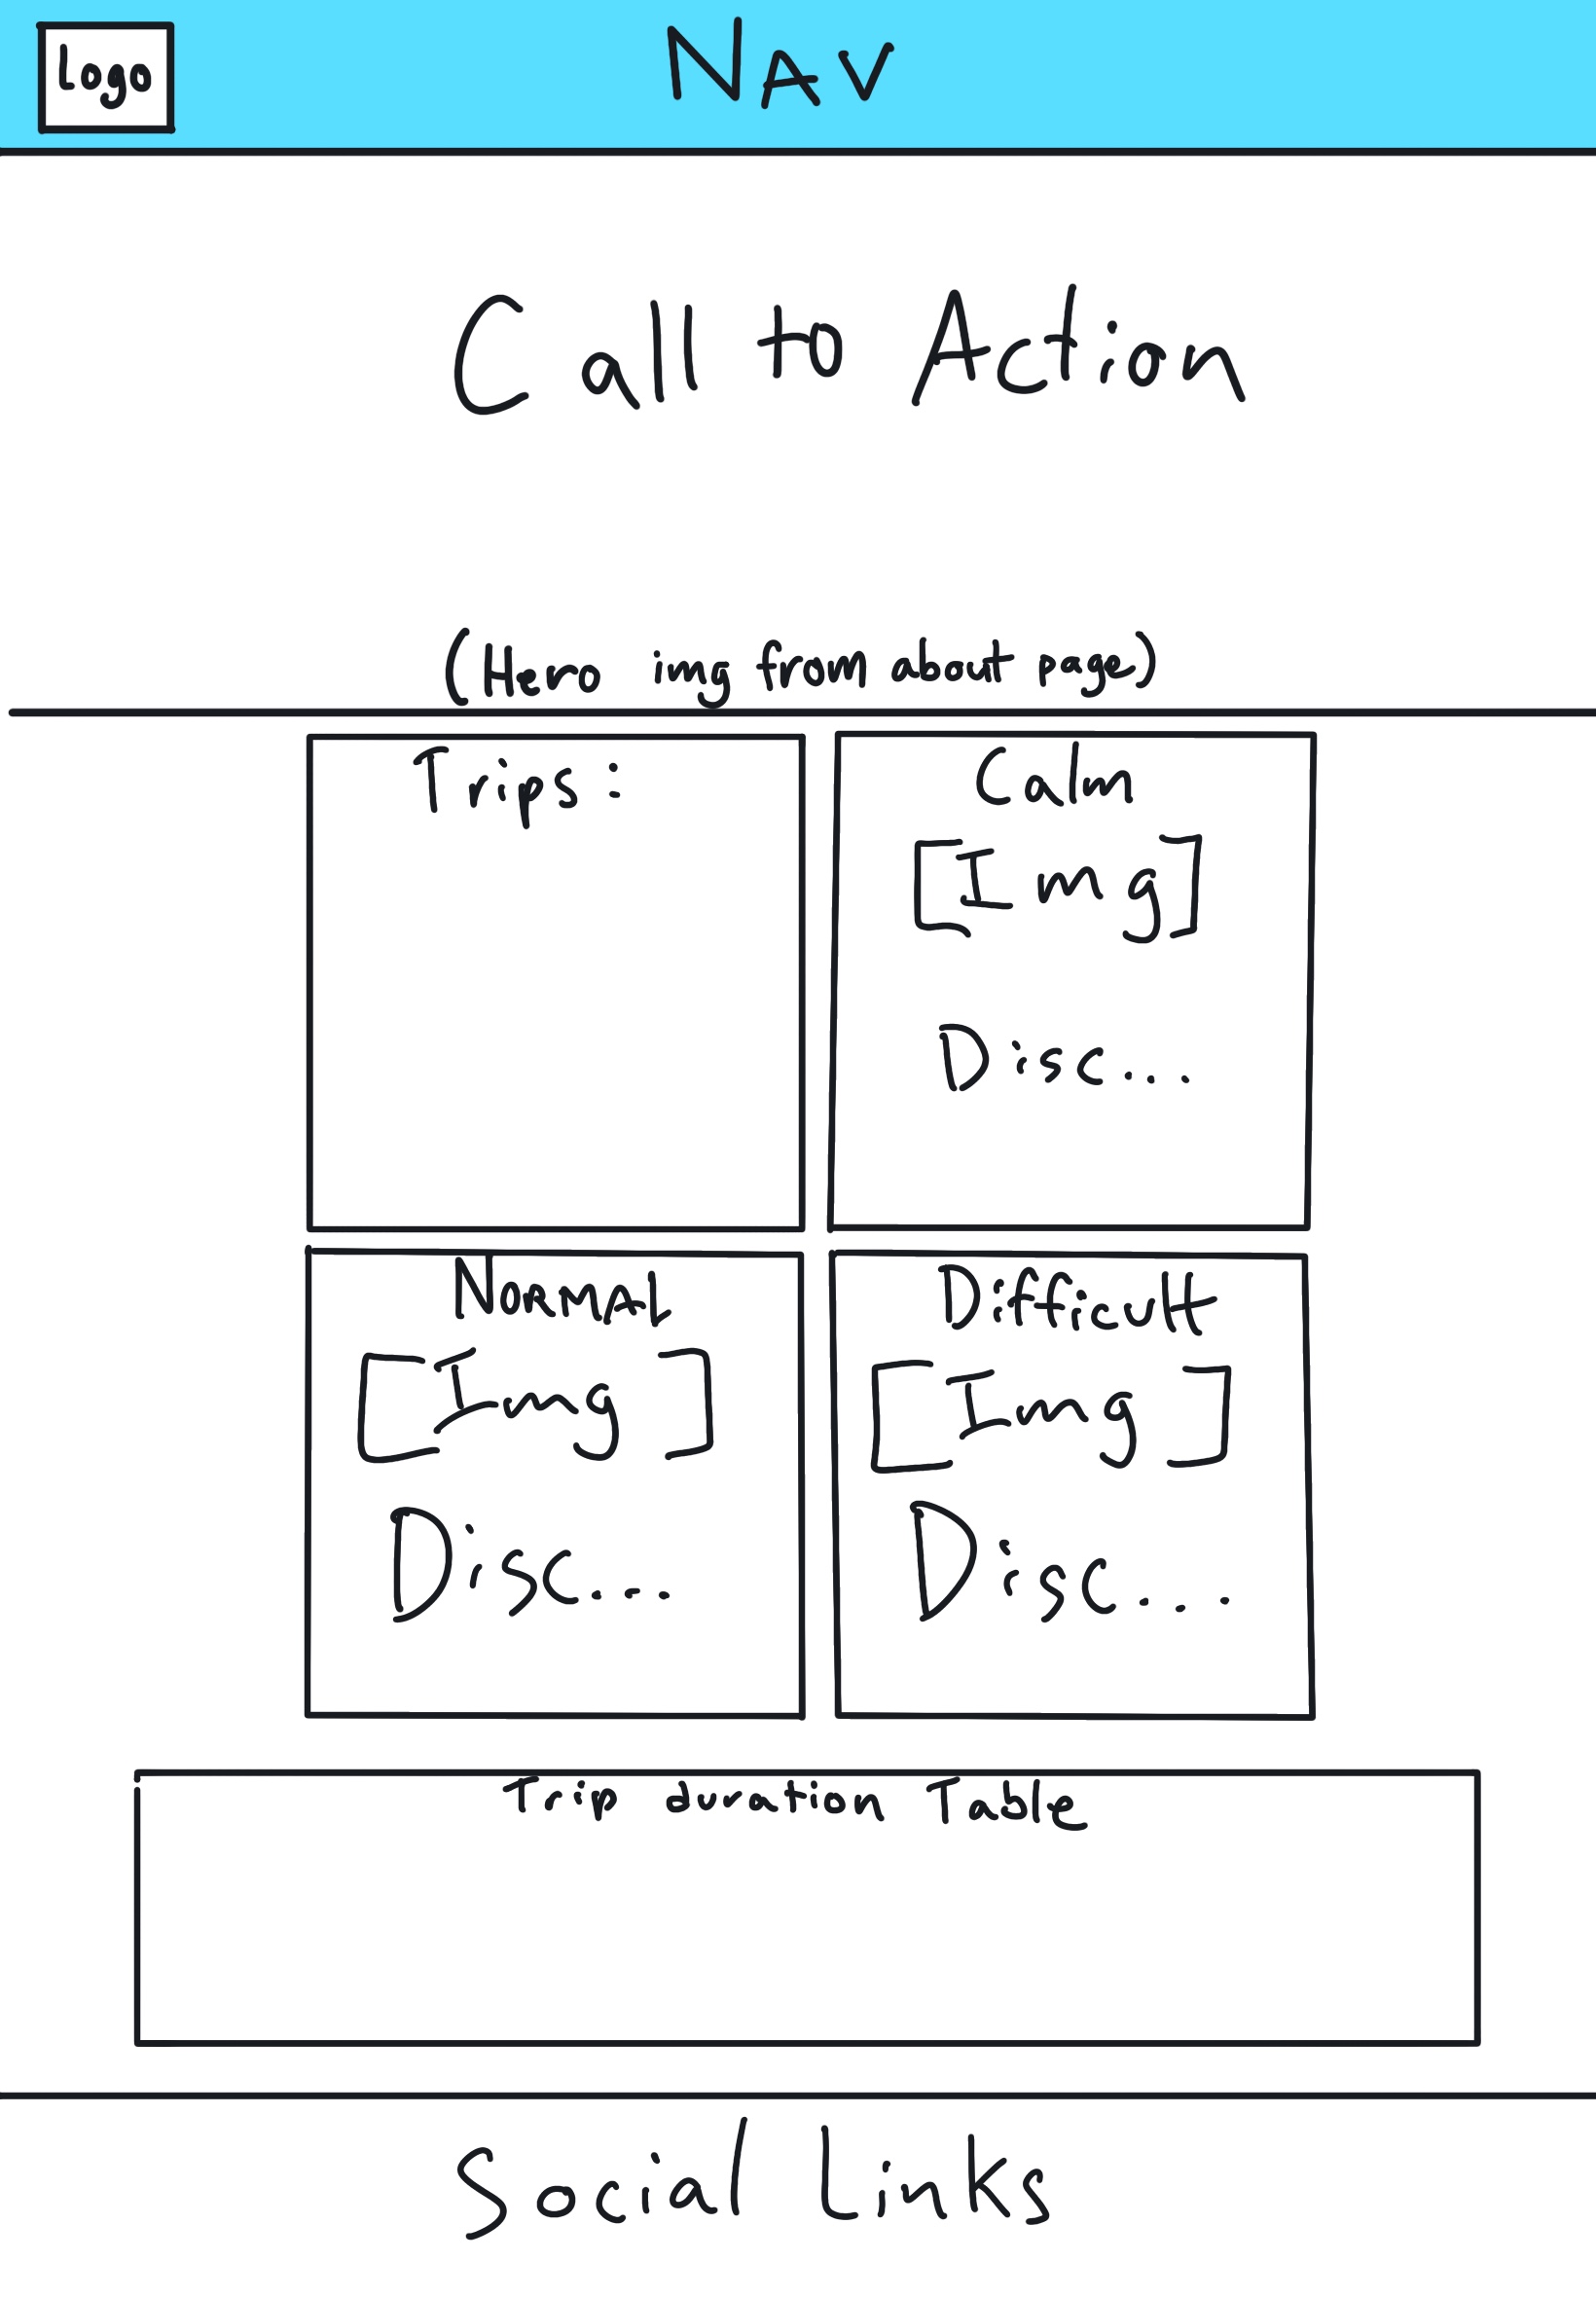 Logo
NAV
Call to Action
(Hero img from about page)
Trips:
Calm
[Img]
Disc...
NormAL
[Img]
Disc...
Difficult
[Img]
Disc...
Trip duration Table
Social Links